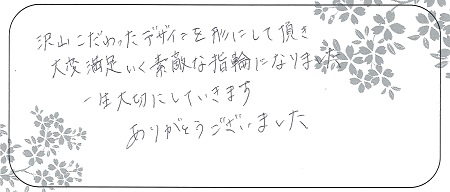 沢山こだわったデザインを形にして頂き
大変満足いく素敵な指輪になりました
一生大切にしていきます
ありがとうございました